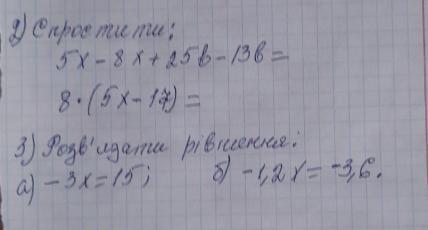 2) Спростити:
5x - 8x + 25в - 13в =
8 · (5x - 17) =
3) Розв'язати рівняння:
а) -3x = 15; б) -1,2x = -3,6.